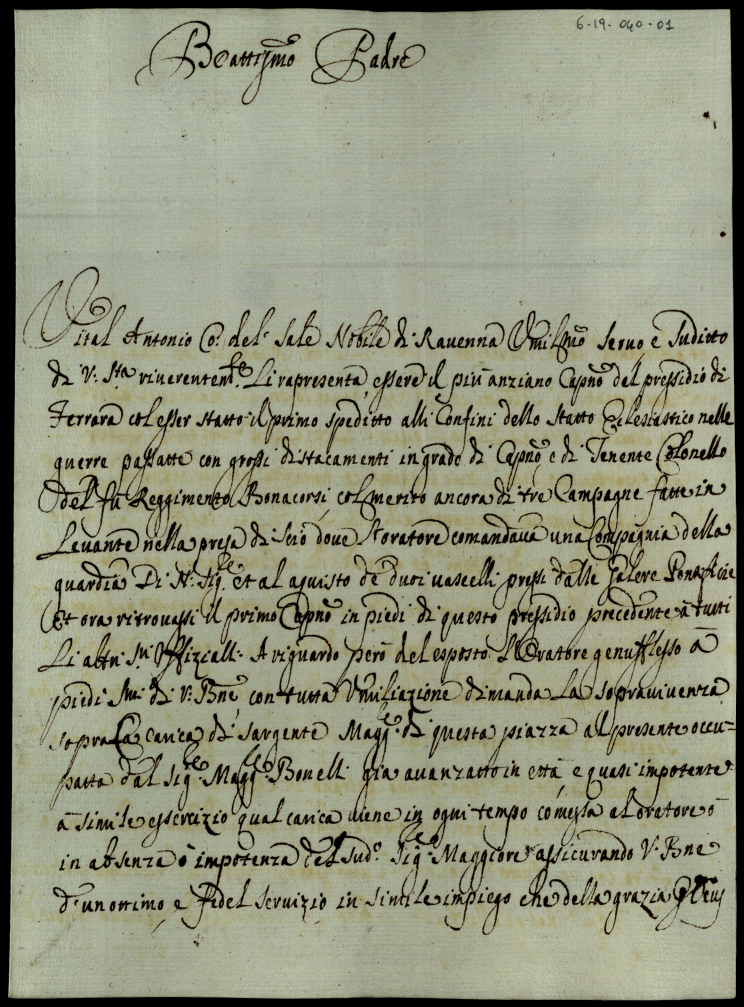 6-19-040-01
Beattis.mo Padre
Vital Antonio Co: del Sale Nobile di Ravenna Umil.mo Servo e Suditto
di V: S.ta riverentem.te Li rapresenta essere il più anziano Cap.no del pressidio di
Ferrara col esser statto il primo speditto alli Confini dello Statto Eclesiastico nelle
guerre passatte con grossi distacamenti in grado di Cap.no e di Tenente Colonello
del fù Reggimento Bonacorsi, col merito ancora di tre Campagne fatte in
Levante nella presa di Scio dove l'oratore comandava una Compagnia della
guardia Di N: Sig.re et al aquisto de duoi vascelli pressi dalle Galere Pontificie
Et ora ritrovassi il primo Cap.no in piedi di questo pressidio precedente à tutti
Li altri Uffiziali: A riguardo però del esposto L'Oratore genuflesso à
piedi S.mi di V: Bne con tutta Umiliazione dimanda La sopravivenza
sopra La carica di Sargente Magg.re di questa piazza al presente occu-
patta dal Sig.re Magg.re Bonelli già avanzatto in ettà e quasi impotente
à simile essercizio qual carica viene in ogni tempo comessa al oratore ò
in absenza ò impotenza del Sud.o Sig.re Maggiore assicurando V: Bne
d'un ottimo e fidel servizio in simile impiego che della grazia